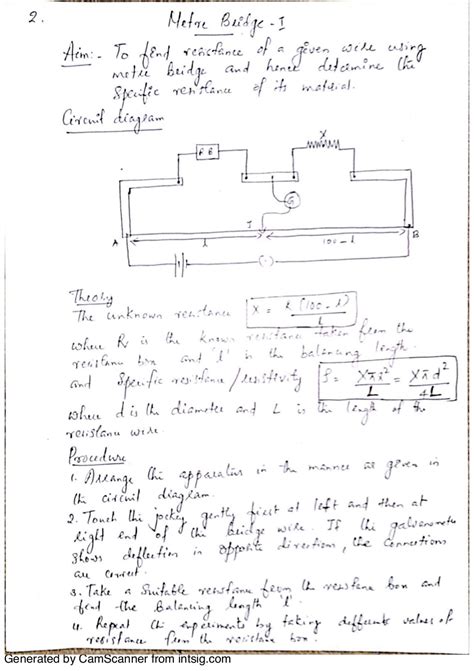 2.
Metre Bridge - I
Aim:- To find resistance of a given wire using
metre bridge and hence determine the
specific resistance of its material.
Circuit diagram
R B
X
G
J
A
B
l
100 - l
Theory
The unknown resistance X = R (100 - l) / l
where R is the known resistance taken from the
resistance box and 'l' is the balancing length.
and Specific resistance / resistivity ρ = Xπr² / L = Xπd² / 4L
where d is the diameter and L is the length of the
resistance wire.
Procedure
1. Arrange the apparatus in the manner as given in
the circuit diagram.
2. Touch the jockey gently first at left and then at
right end of the bridge wire. If the galvanometer
shows deflection in opposite directions, the connections
are correct.
3. Take a suitable resistance from the resistance box and
find the balancing length 'l'.
4. Repeat the experiments by taking different values of
resistance from the resistance box.
Generated by CamScanner from intsig.com